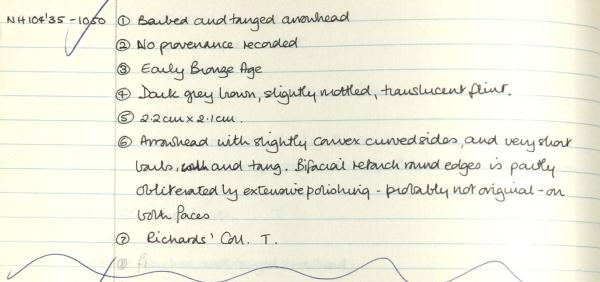 NH104'35 -1050 ① Barbed and tanged arrowhead
② No provenance recorded
③ Early Bronze Age
④ Dark grey brown, slightly mottled, translucent flint.
⑤ 2.2cm x 2.1cm.
⑥ Arrowhead with slightly convex curved sides, and very short
barbs, and tang. Bifacial retouch round edges is partly
obliterated by extensive polishing - probably not original - on
both faces
⑦ Richards' Coll. T.